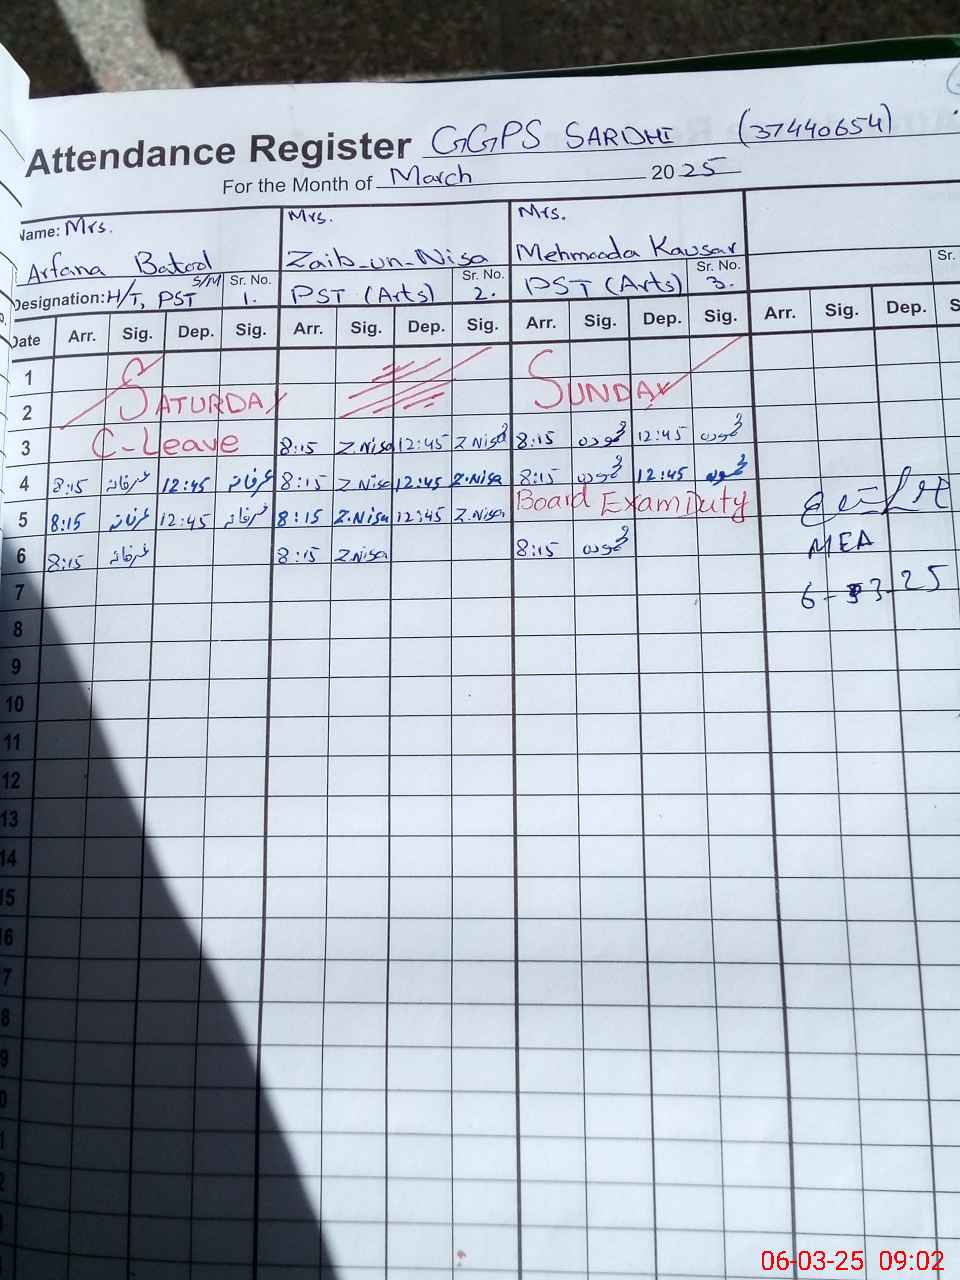 Attendance Register GGPS SARDHI (37440654)
For the Month of March 2025
Name: Mrs. Arfana Batool Mrs. Zaib-un-Nisa Mrs. Mehmooda Kausar
Designation: H/T, PST S/M Sr. No. 1. PST (Arts) Sr. No. 2. PST (Arts) Sr. No. 3. Sr.
Date Arr. Sig. Dep. Sig. Arr. Sig. Dep. Sig. Arr. Sig. Dep. Sig. Arr. Sig. Dep. S
1 SATURDAY SUNDAY
2
3 C-Leave 8:15 Z.Nisa 12:45 Z.Nisa 8:15 محمودہ 12:45 محمودہ
4 8:15 عرفانہ 12:45 عرفانہ 8:15 Z.Nisa 12:45 Z.Nisa 8:15 محمودہ 12:45 محمودہ
5 8:15 عرفانہ 12:45 عرفانہ 8:15 Z.Nisa 12:45 Z.Nisa Board Exam Duty
6 8:15 عرفانہ 8:15 Z.Nisa 8:15 محمودہ MEA
7 6-3-25
8
9
10
11
12
13
14
15
16
7
8
9
0
1
2
06-03-25 09:02